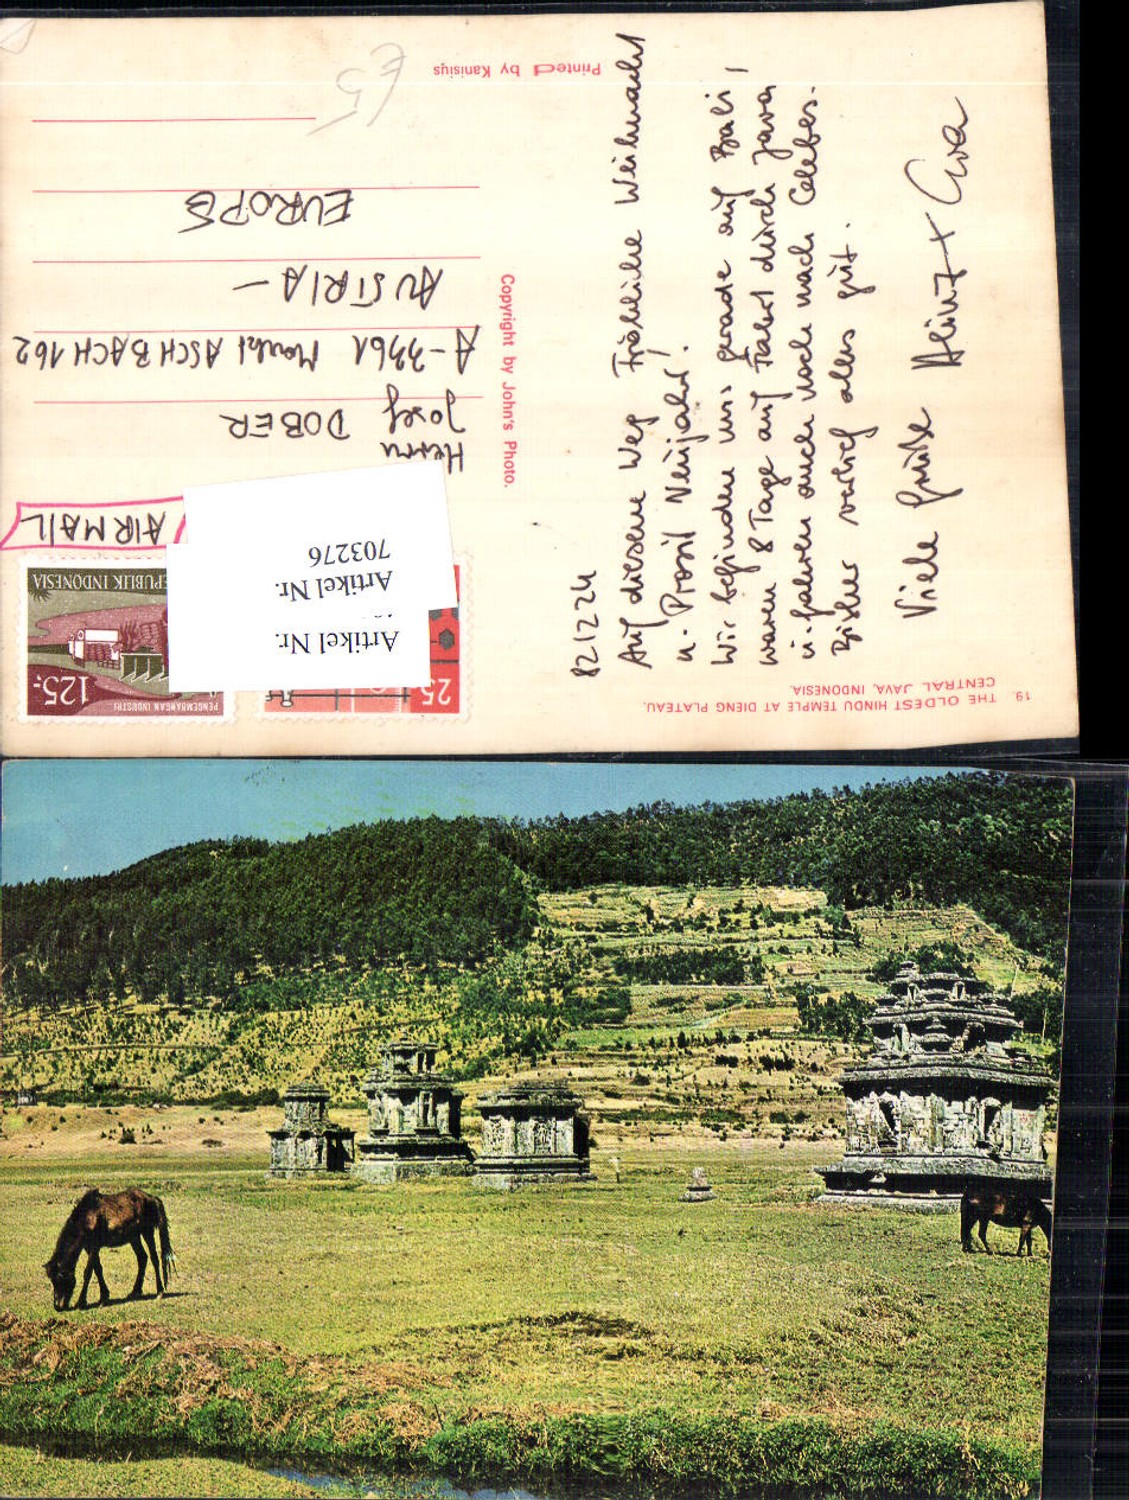 THE OLDEST HINDU TEMPLE AT DIENG PLATEAU.
CENTRAL JAVA, INDONESIA.
19.
Auf diesem Weg Fröhliche Weihnacht
u. Prosit Neujahr!
Wir befinden uns gerade auf Bali!
waren 8 Tage auf Fahrt durch Java
u. fahren auch noch nach Celebes.
Bisher verlief alles gut.
Viele Grüße Heinz + Eva
Copyright by John's Photo.
Printed by Kanisius
PENGEMBANGAN INDUSTRI
125:-
REPUBLIK INDONESIA
25
Artikel Nr.
Artikel Nr.
703276
AIRMAIL
Herrn
Josef DOBER
A-3361 Markt ASCHBACH 162
AUSTRIA -
EUROPE